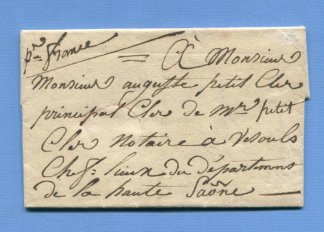 pr france
= A Monsieur
Monsieur auguste petit Cler
principal Cler de Mr. petit
Cler Notaire à Vesouls
Chef: lieux du départmens
de la haute Saône